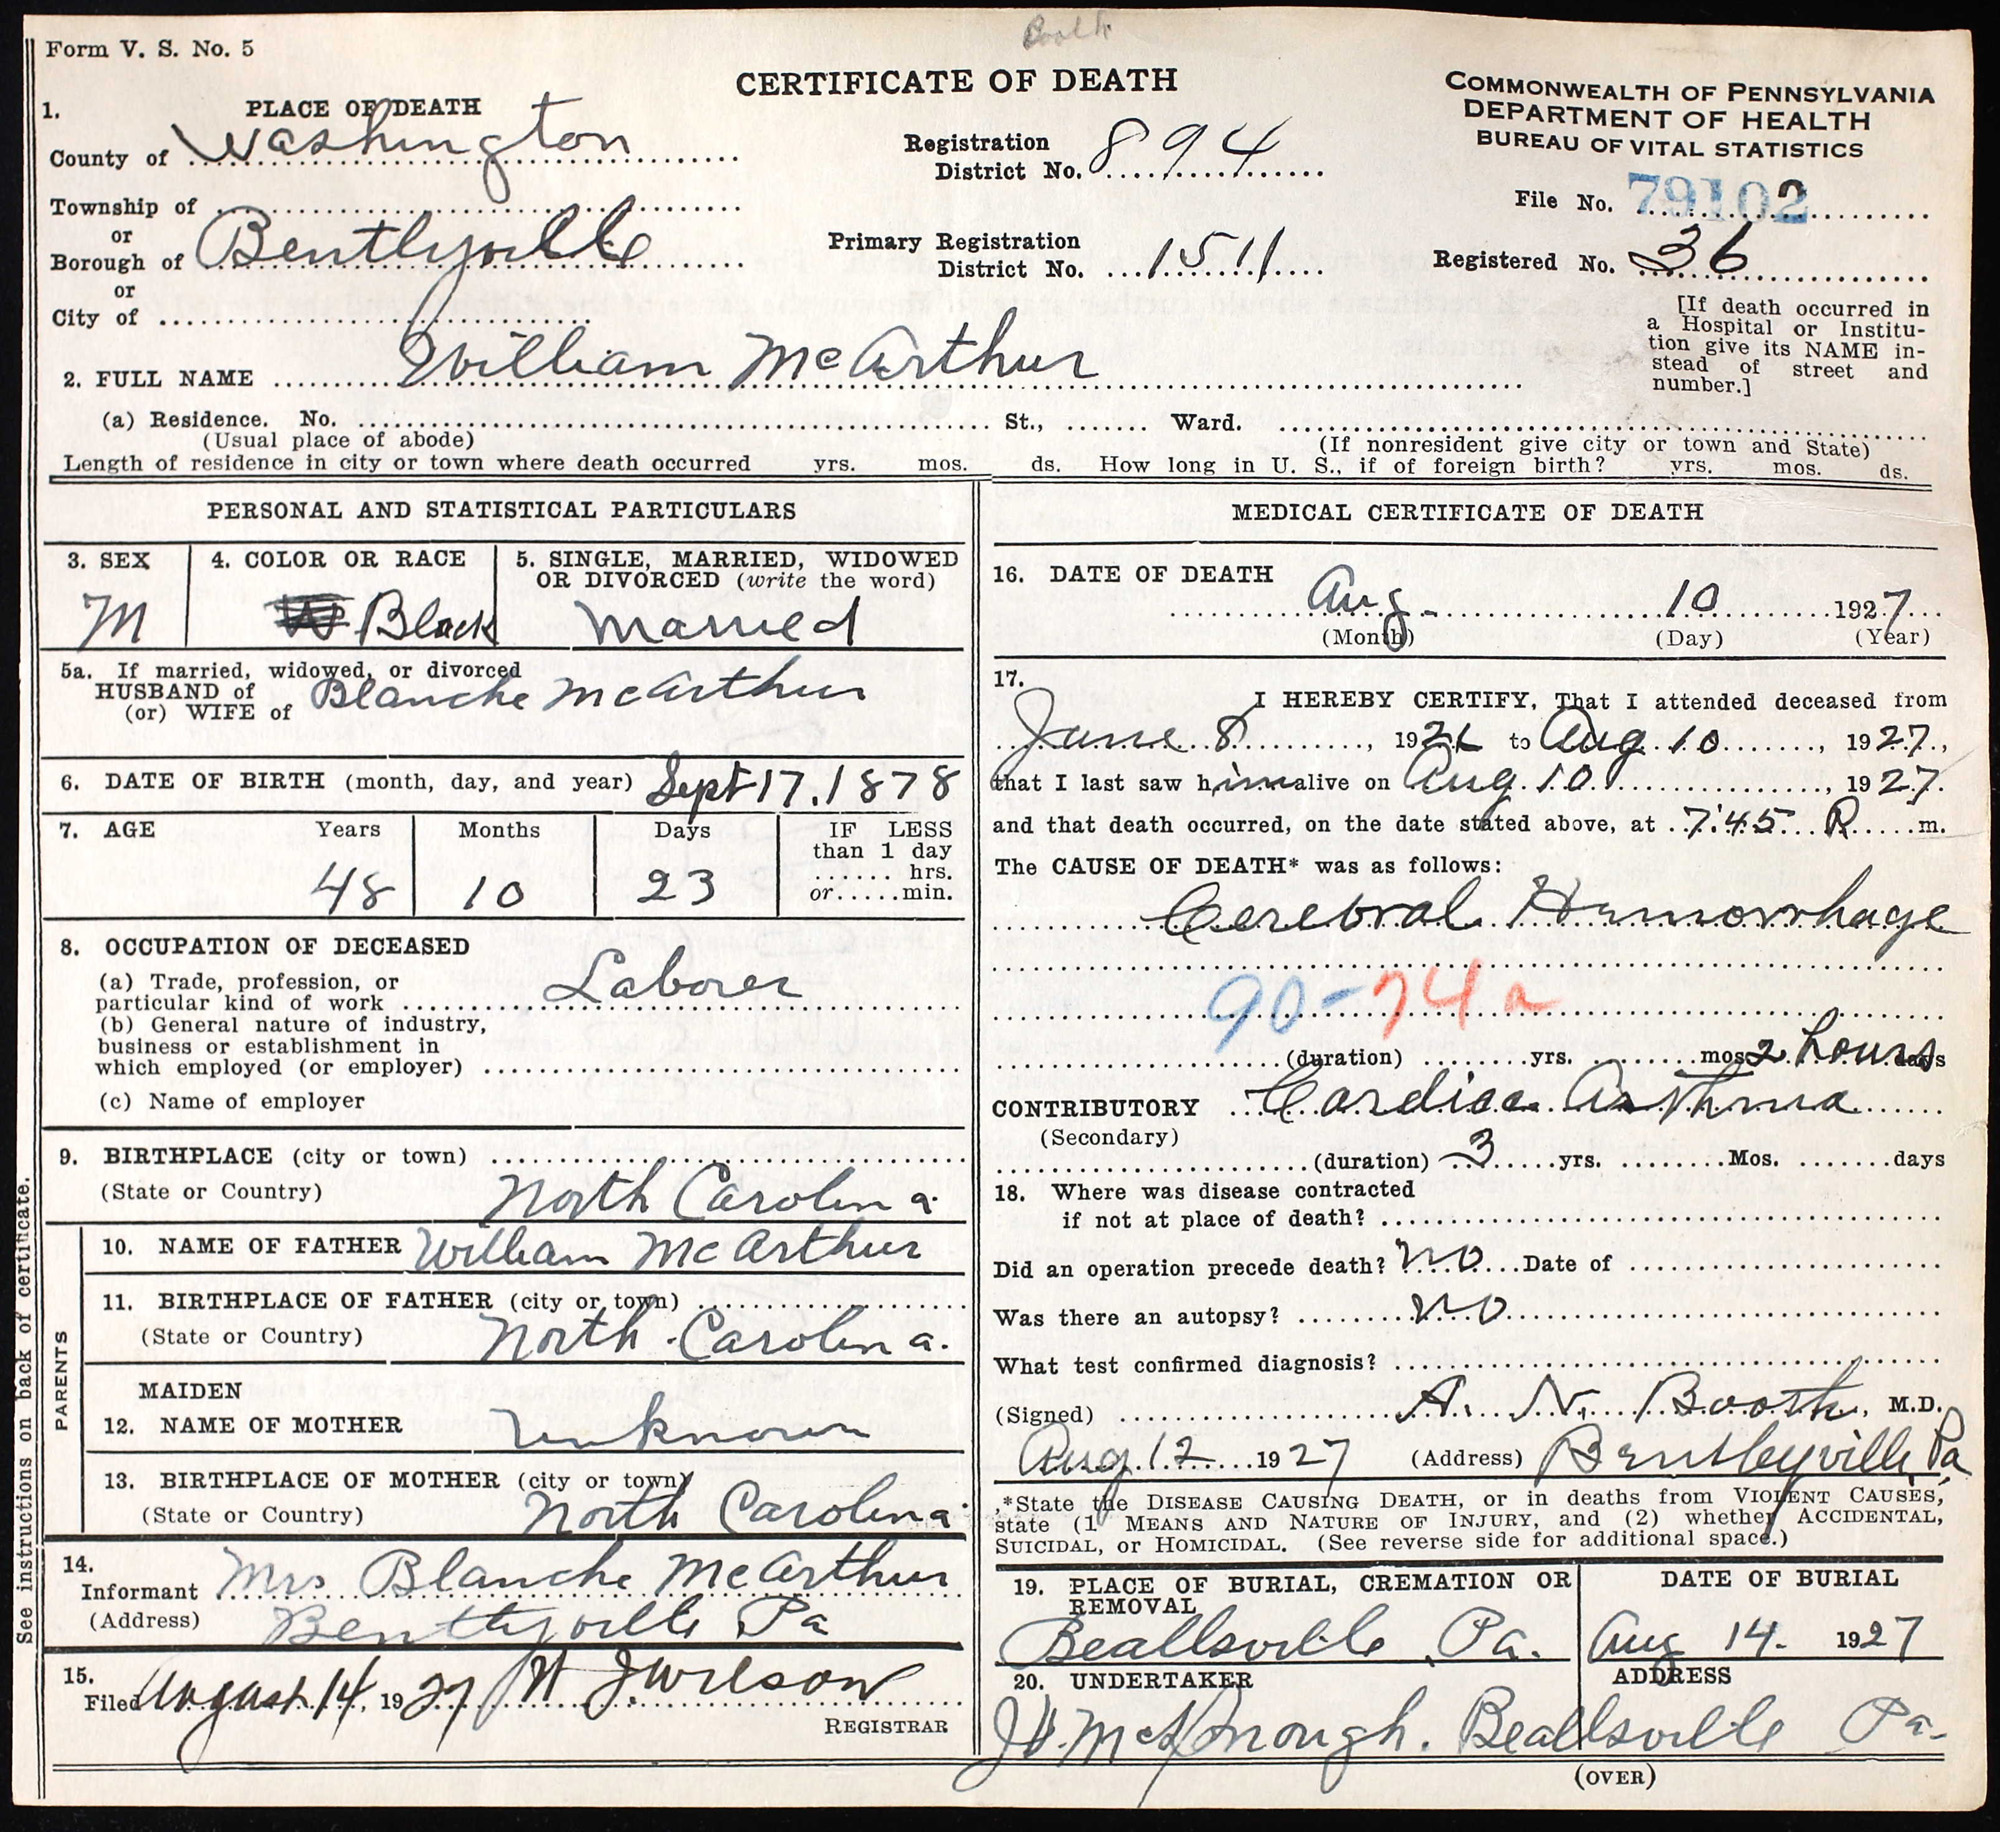 Booth
Form V. S. No. 5
CERTIFICATE OF DEATH
COMMONWEALTH OF PENNSYLVANIA
DEPARTMENT OF HEALTH
BUREAU OF VITAL STATISTICS
1. PLACE OF DEATH
County of Washington
Registration
District No. 894
File No. 79102
Township of
or
Borough of Bentlyville
or
City of
Primary Registration
District No. 1511
Registered No. 36
[If death occurred in
a Hospital or Institu-
tion give its NAME in-
stead of street and
number.]
2. FULL NAME William McArthur
(a) Residence. No. St., Ward.
(Usual place of abode) (If nonresident give city or town and State)
Length of residence in city or town where death occurred yrs. mos. ds. How long in U. S., if of foreign birth? yrs. mos. ds.
PERSONAL AND STATISTICAL PARTICULARS
3. SEX
M
4. COLOR OR RACE
Black
5. SINGLE, MARRIED, WIDOWED
OR DIVORCED (write the word)
Married
5a. If married, widowed, or divorced
HUSBAND of
(or) WIFE of Blanche McArthur
6. DATE OF BIRTH (month, day, and year) Sept 17. 1878
7. AGE Years Months Days IF LESS
than 1 day
hrs.
or min.
48 10 23
8. OCCUPATION OF DECEASED
(a) Trade, profession, or
particular kind of work Laborer
(b) General nature of industry,
business or establishment in
which employed (or employer)
(c) Name of employer
9. BIRTHPLACE (city or town)
(State or Country) North Carolina
PARENTS
10. NAME OF FATHER William McArthur
11. BIRTHPLACE OF FATHER (city or town)
(State or Country) North Carolina.
MAIDEN
12. NAME OF MOTHER Unknown
13. BIRTHPLACE OF MOTHER (city or town)
(State or Country) North Carolina
14.
Informant Mrs Blanche McArthur
(Address) Bentlyville Pa
15.
Filed August 14, 1927 J Wilson
REGISTRAR
See instructions on back of certificate.
MEDICAL CERTIFICATE OF DEATH
16. DATE OF DEATH
Aug. 10 1927
(Month) (Day) (Year)
17.
I HEREBY CERTIFY, That I attended deceased from
June 8, 192 to Aug 10, 1927,
that I last saw him alive on Aug. 10, 1927.
and that death occurred, on the date stated above, at 7:45 P. m.
The CAUSE OF DEATH* was as follows:
Cerebral Hemorrhage
90-74a
(duration) yrs. mos 2 hours days
CONTRIBUTORY Cardiac Asthma
(Secondary)
(duration) 3 yrs. Mos. days
18. Where was disease contracted
if not at place of death?
Did an operation precede death? no Date of
Was there an autopsy? no
What test confirmed diagnosis?
(Signed) A. N. Booth, M.D.
Aug 12 1927 (Address) Bentleyville, Pa
*State the DISEASE CAUSING DEATH, or in deaths from VIOLENT CAUSES,
state (1 MEANS AND NATURE OF INJURY, and (2) whether ACCIDENTAL,
SUICIDAL, or HOMICIDAL. (See reverse side for additional space.)
19. PLACE OF BURIAL, CREMATION OR
REMOVAL
Beallsville, Pa.
DATE OF BURIAL
Aug 14. 1927
20. UNDERTAKER ADDRESS
Beallsville Pa.
(OVER)